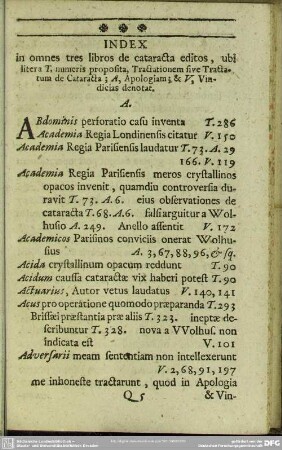 INDEX
in omnes tres libros de cataracta editos, ubi
litera T. numeris proposita, Tractationem sive Tracta-
tum de Cataracta; A, Apologiam; & V, Vin-
dicias denotat.
A.
ABdominis perforatio casu inventa T. 286
Academia Regia Londinensis citatur V. 150
Academia Regia Parisiensis laudatur T. 73. A. 29
166. V. 119
Academia Regia Parisiensis meros crystallinos
opacos invenit, quamdiu controversia du-
ravit T. 73. A. 6. eius observationes de
cataracta T. 68. A. 6. falsi arguitur a Wol-
husio A. 249. Anello assentit V. 172
Academicos Parisinos conviciis onerat Wolhu-
sius A. 3, 67, 88, 96, & sq.
Acida crystallinum opacum reddunt T. 90
Acidum caussa cataractæ vix haberi potest T. 90
Actuarius, Autor vetus laudatus V. 140, 141
Acus pro operatione quomodo præparanda T. 293
Brissæi præstantia præ aliis T. 323. ineptæ de-
scribuntur T. 328. nova a VVolhus. non
indicata est V. 101
Adversarii meam sententiam non intellexerunt
V. 2, 68, 91, 197
me inhoneste tractarunt, quod in Apologia
Q 5 & Vin-